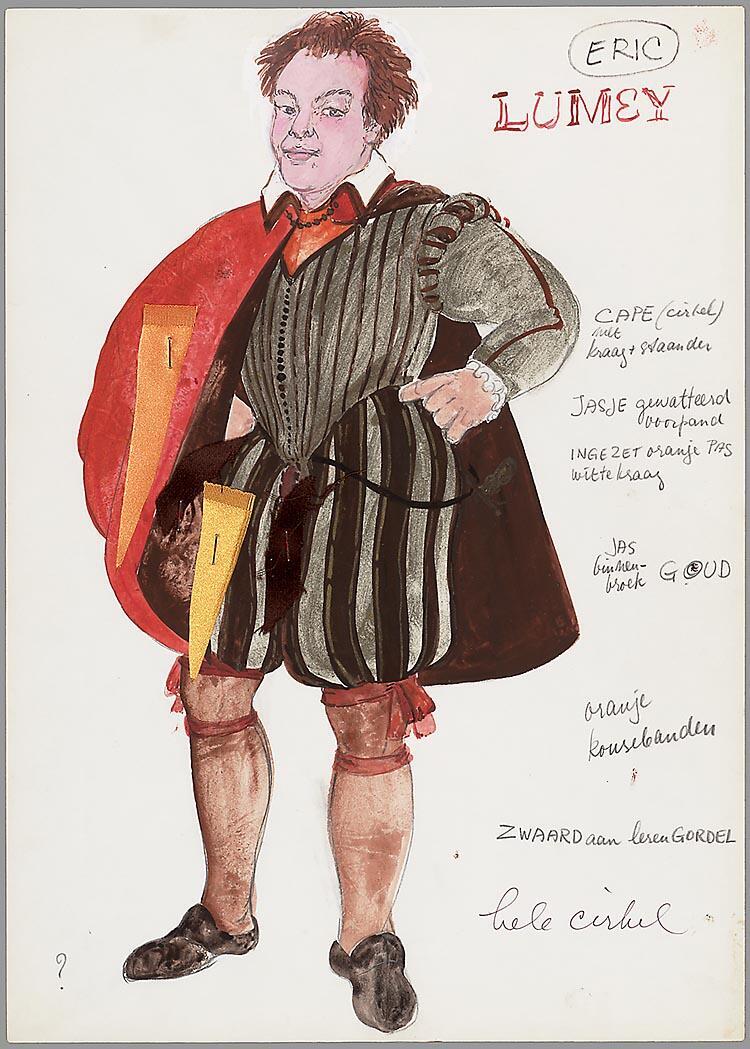 ERIC
LUMEY
CAPE (cirkel)
met
kraag + staander
JASJE gewatteerd
voorpand
INGEZET oranje PAS
witte kraag
JAS
binnen-
broek GOUD
oranje
kousebanden
ZWAARD aan leren GORDEL
hele cirkel
?